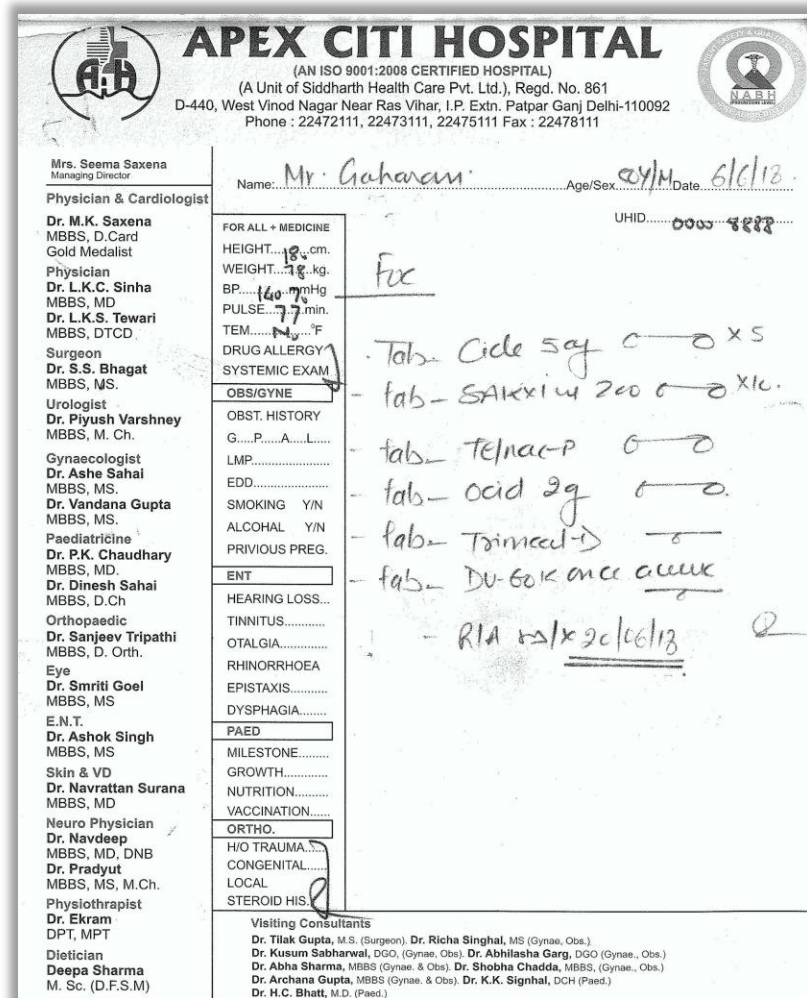 APEX CITI HOSPITAL
(AN ISO 9001:2008 CERTIFIED HOSPITAL)
(A Unit of Siddharth Health Care Pvt. Ltd.), Regd. No. 861
D-440, West Vinod Nagar Near Ras Vihar, I.P. Extn. Patpar Ganj Delhi-110092
Phone : 22472111, 22473111, 22475111 Fax : 22478111
NABH
Mrs. Seema Saxena
Managing Director
Physician & Cardiologist
Dr. M.K. Saxena
MBBS, D.Card
Gold Medalist
Physician
Dr. L.K.C. Sinha
MBBS, MD
Dr. L.K.S. Tewari
MBBS, DTCD
Surgeon
Dr. S.S. Bhagat
MBBS, MS.
Urologist
Dr. Piyush Varshney
MBBS, M. Ch.
Gynaecologist
Dr. Ashe Sahai
MBBS, MS.
Dr. Vandana Gupta
MBBS, MS.
Paediatricine
Dr. P.K. Chaudhary
MBBS, MD.
Dr. Dinesh Sahai
MBBS, D.Ch
Orthopaedic
Dr. Sanjeev Tripathi
MBBS, D. Orth.
Eye
Dr. Smriti Goel
MBBS, MS
E.N.T.
Dr. Ashok Singh
MBBS, MS
Skin & VD
Dr. Navrattan Surana
MBBS, MD
Neuro Physician
Dr. Navdeep
MBBS, MD, DNB
Dr. Pradyut
MBBS, MS, M.Ch.
Physiothrapist
Dr. Ekram
DPT, MPT
Dietician
Deepa Sharma
M. Sc. (D.F.S.M)
Name: Mr. Age/Sex /M Date 6/6/13
UHID 0000 8888
FOR ALL + MEDICINE
HEIGHT cm.
WEIGHT 78 kg.
BP 140 mmHg
PULSE 77 min.
TEM N °F
DRUG ALLERGY
SYSTEMIC EXAM
OBS/GYNE
OBST. HISTORY
G.....P.....A.....L.....
LMP
EDD
SMOKING Y/N
ALCOHAL Y/N
PRIVIOUS PREG.
ENT
HEARING LOSS...
TINNITUS
OTALGIA
RHINORRHOEA
EPISTAXIS
DYSPHAGIA
PAED
MILESTONE
GROWTH
NUTRITION
VACCINATION
ORTHO.
H/O TRAUMA
CONGENITAL
LOCAL
STEROID HIS.
Tab- x 5
- tab- 200 x
- tab-
- tab- Ocid
- tab-
- tab- once
- R/A 20/06/13
Visiting Consultants
Dr. Tilak Gupta, M.S. (Surgeon). Dr. Richa Singhal, MS (Gynae, Obs.)
Dr. Kusum Sabharwal, DGO, (Gynae, Obs). Dr. Abhilasha Garg, DGO (Gynae., Obs.)
Dr. Abha Sharma, MBBS (Gynae. & Obs). Dr. Shobha Chadda, MBBS, (Gynae., Obs.)
Dr. Archana Gupta, MBBS (Gynae. & Obs). Dr. K.K. Signhal, DCH (Paed.)
Dr. H.C. Bhatt, M.D. (Paed.)